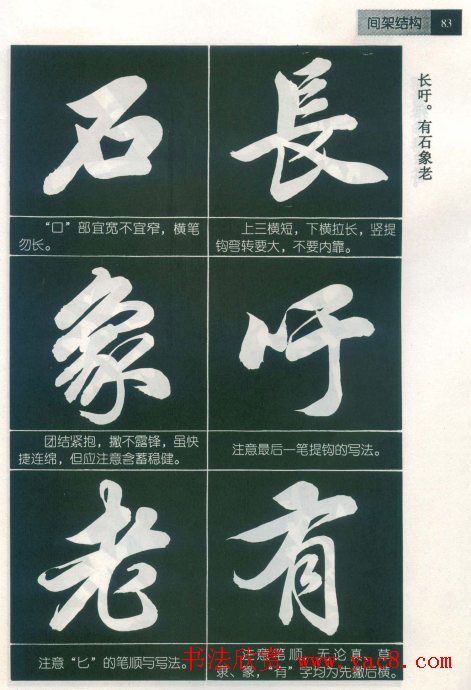 间架结构 83
长吁。有石象老
長
上三横短，下横拉长，竖提
钩弯转要大，不要内靠。
吁
注意最后一笔提钩的写法。
有
注意笔顺，无论真、草、
隶、篆，“有”字均为先撇后横。
石
“口”部宜宽不宜窄，横笔
勿长。
象
团结紧抱，撇不露锋，虽快
捷连绵，但应注意含蓄稳健。
老
注意“匕”的笔顺与写法。
书法欣赏 www.yac8.com